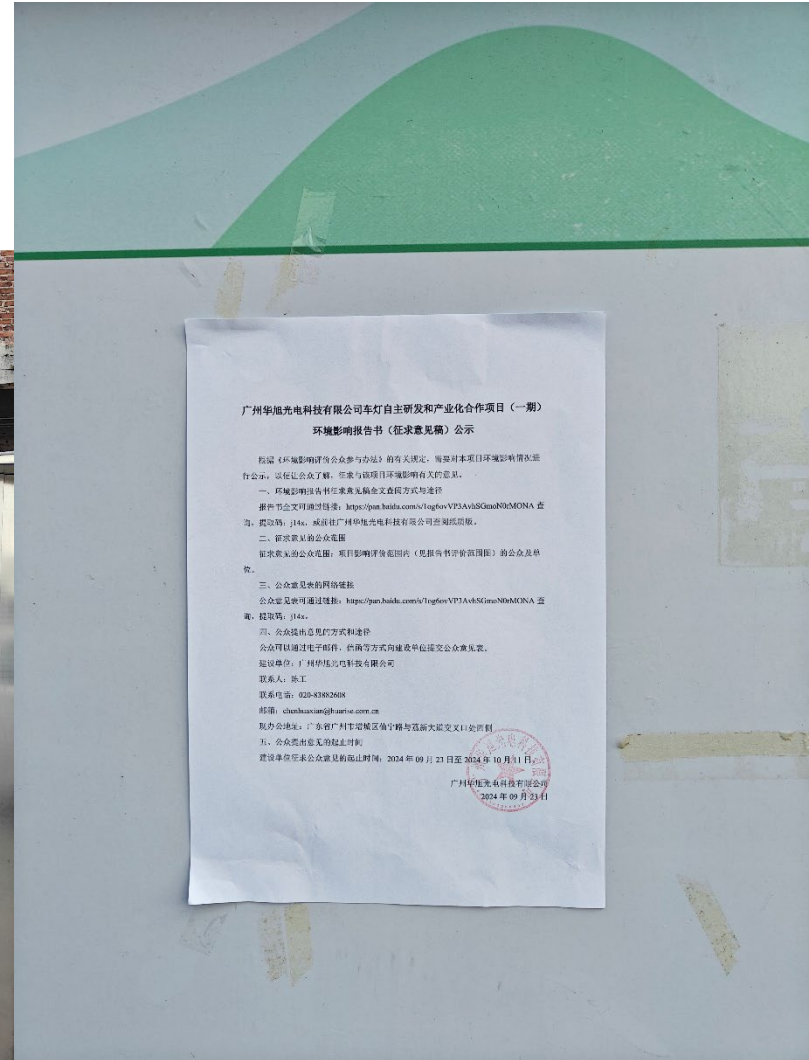 广州华旭光电科技有限公司车灯自主研发和产业化合作项目（一期）
环境影响报告书（征求意见稿）公示
根据《环境影响评价公众参与办法》的有关规定，需要对本项目环境影响情况进
行公示，以便让公众了解，征求与该项目环境影响有关的意见。
一、环境影响报告书征求意见稿全文查阅方式与途径
报告书全文可通过链接：https://pan.baidu.com/s/1og6ovVP3AvhSGmoN0rMONA 查
询，提取码：j14x，或前往广州华旭光电科技有限公司查阅纸质版。
二、征求意见的公众范围
征求意见的公众范围：项目影响评价范围内（见报告书评价范围图）的公众及单
位。
三、公众意见表的网络链接
公众意见表可通过链接：https://pan.baidu.com/s/1og6ovVP3AvhSGmoN0rMONA 查
询，提取码：j14x。
四、公众提出意见的方式和途径
公众可以通过电子邮件、信函等方式向建设单位提交公众意见表。
建设单位：广州华旭光电科技有限公司
联系人：陈工
联系电话：020-83882608
邮箱：chenhuaxian@huarise.com.cn
现办公地址：广东省广州市增城区仙宁路与荔新大道交叉口处西侧
五、公众提出意见的起止时间
建设单位征求公众意见的起止时间：2024 年 09 月 23 日至 2024 年 10 月 11 日。
广州华旭光电科技有限公司
2024 年 09 月 23 日